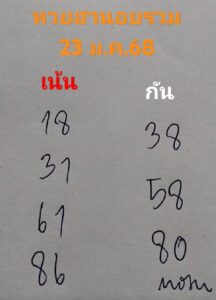 หวยฮานอยรวม
23 ม.ค.68
เน้น กัน
18 38
31 58
61 80
86 nom